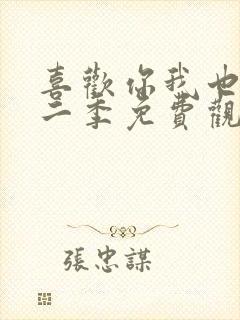 喜歡你我也
二季免費觀
張忠謀